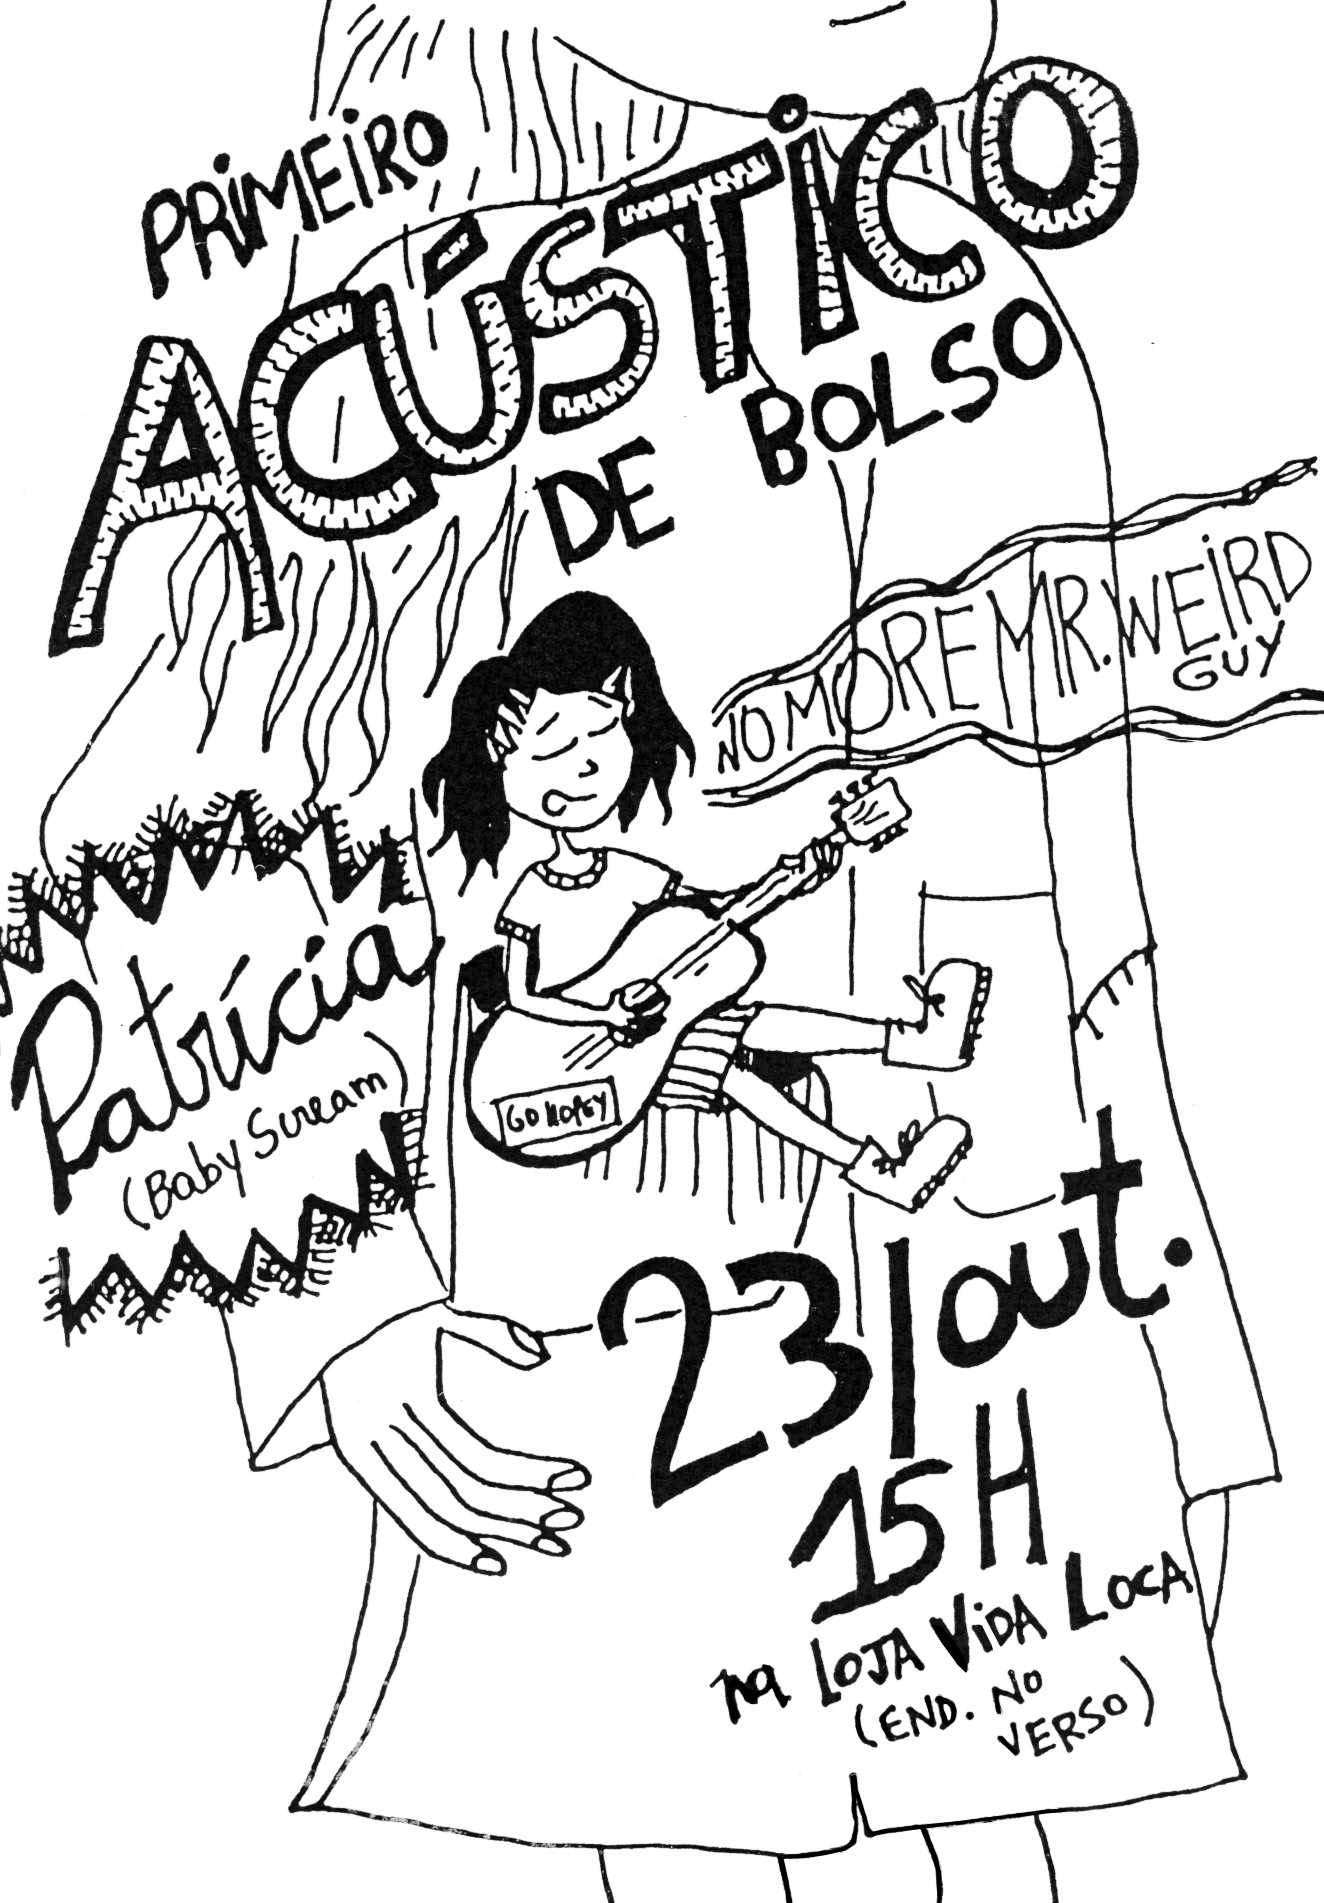 PRIMEIRO
ACÚSTICO
DE BOLSO
NO MORE MR. WEIRD
GUY
Patrícia
(Baby Scream)
GO HOPEY
23/out.
15H
na LOJA ViDA LOCA
(END. NO
VERSO)